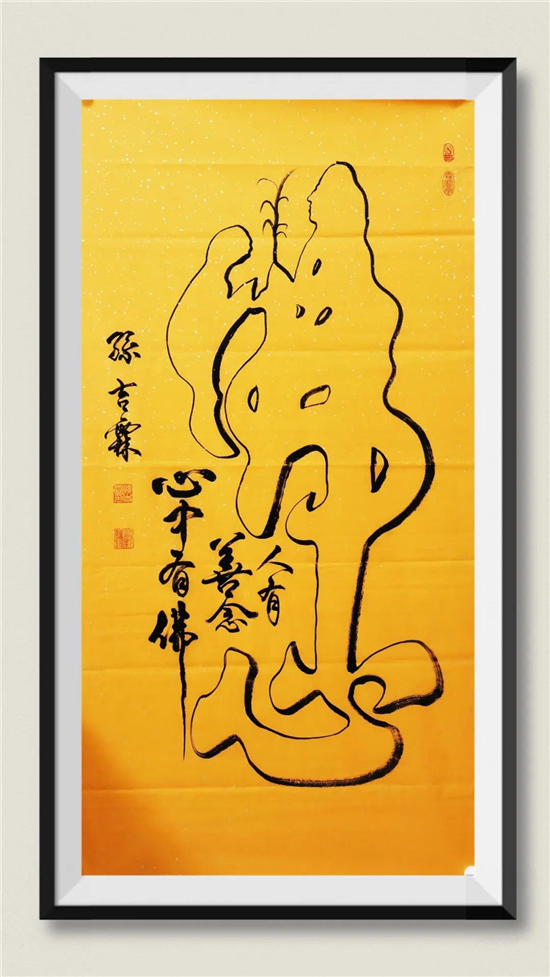 人有
善念
心中有佛
孫吉霖